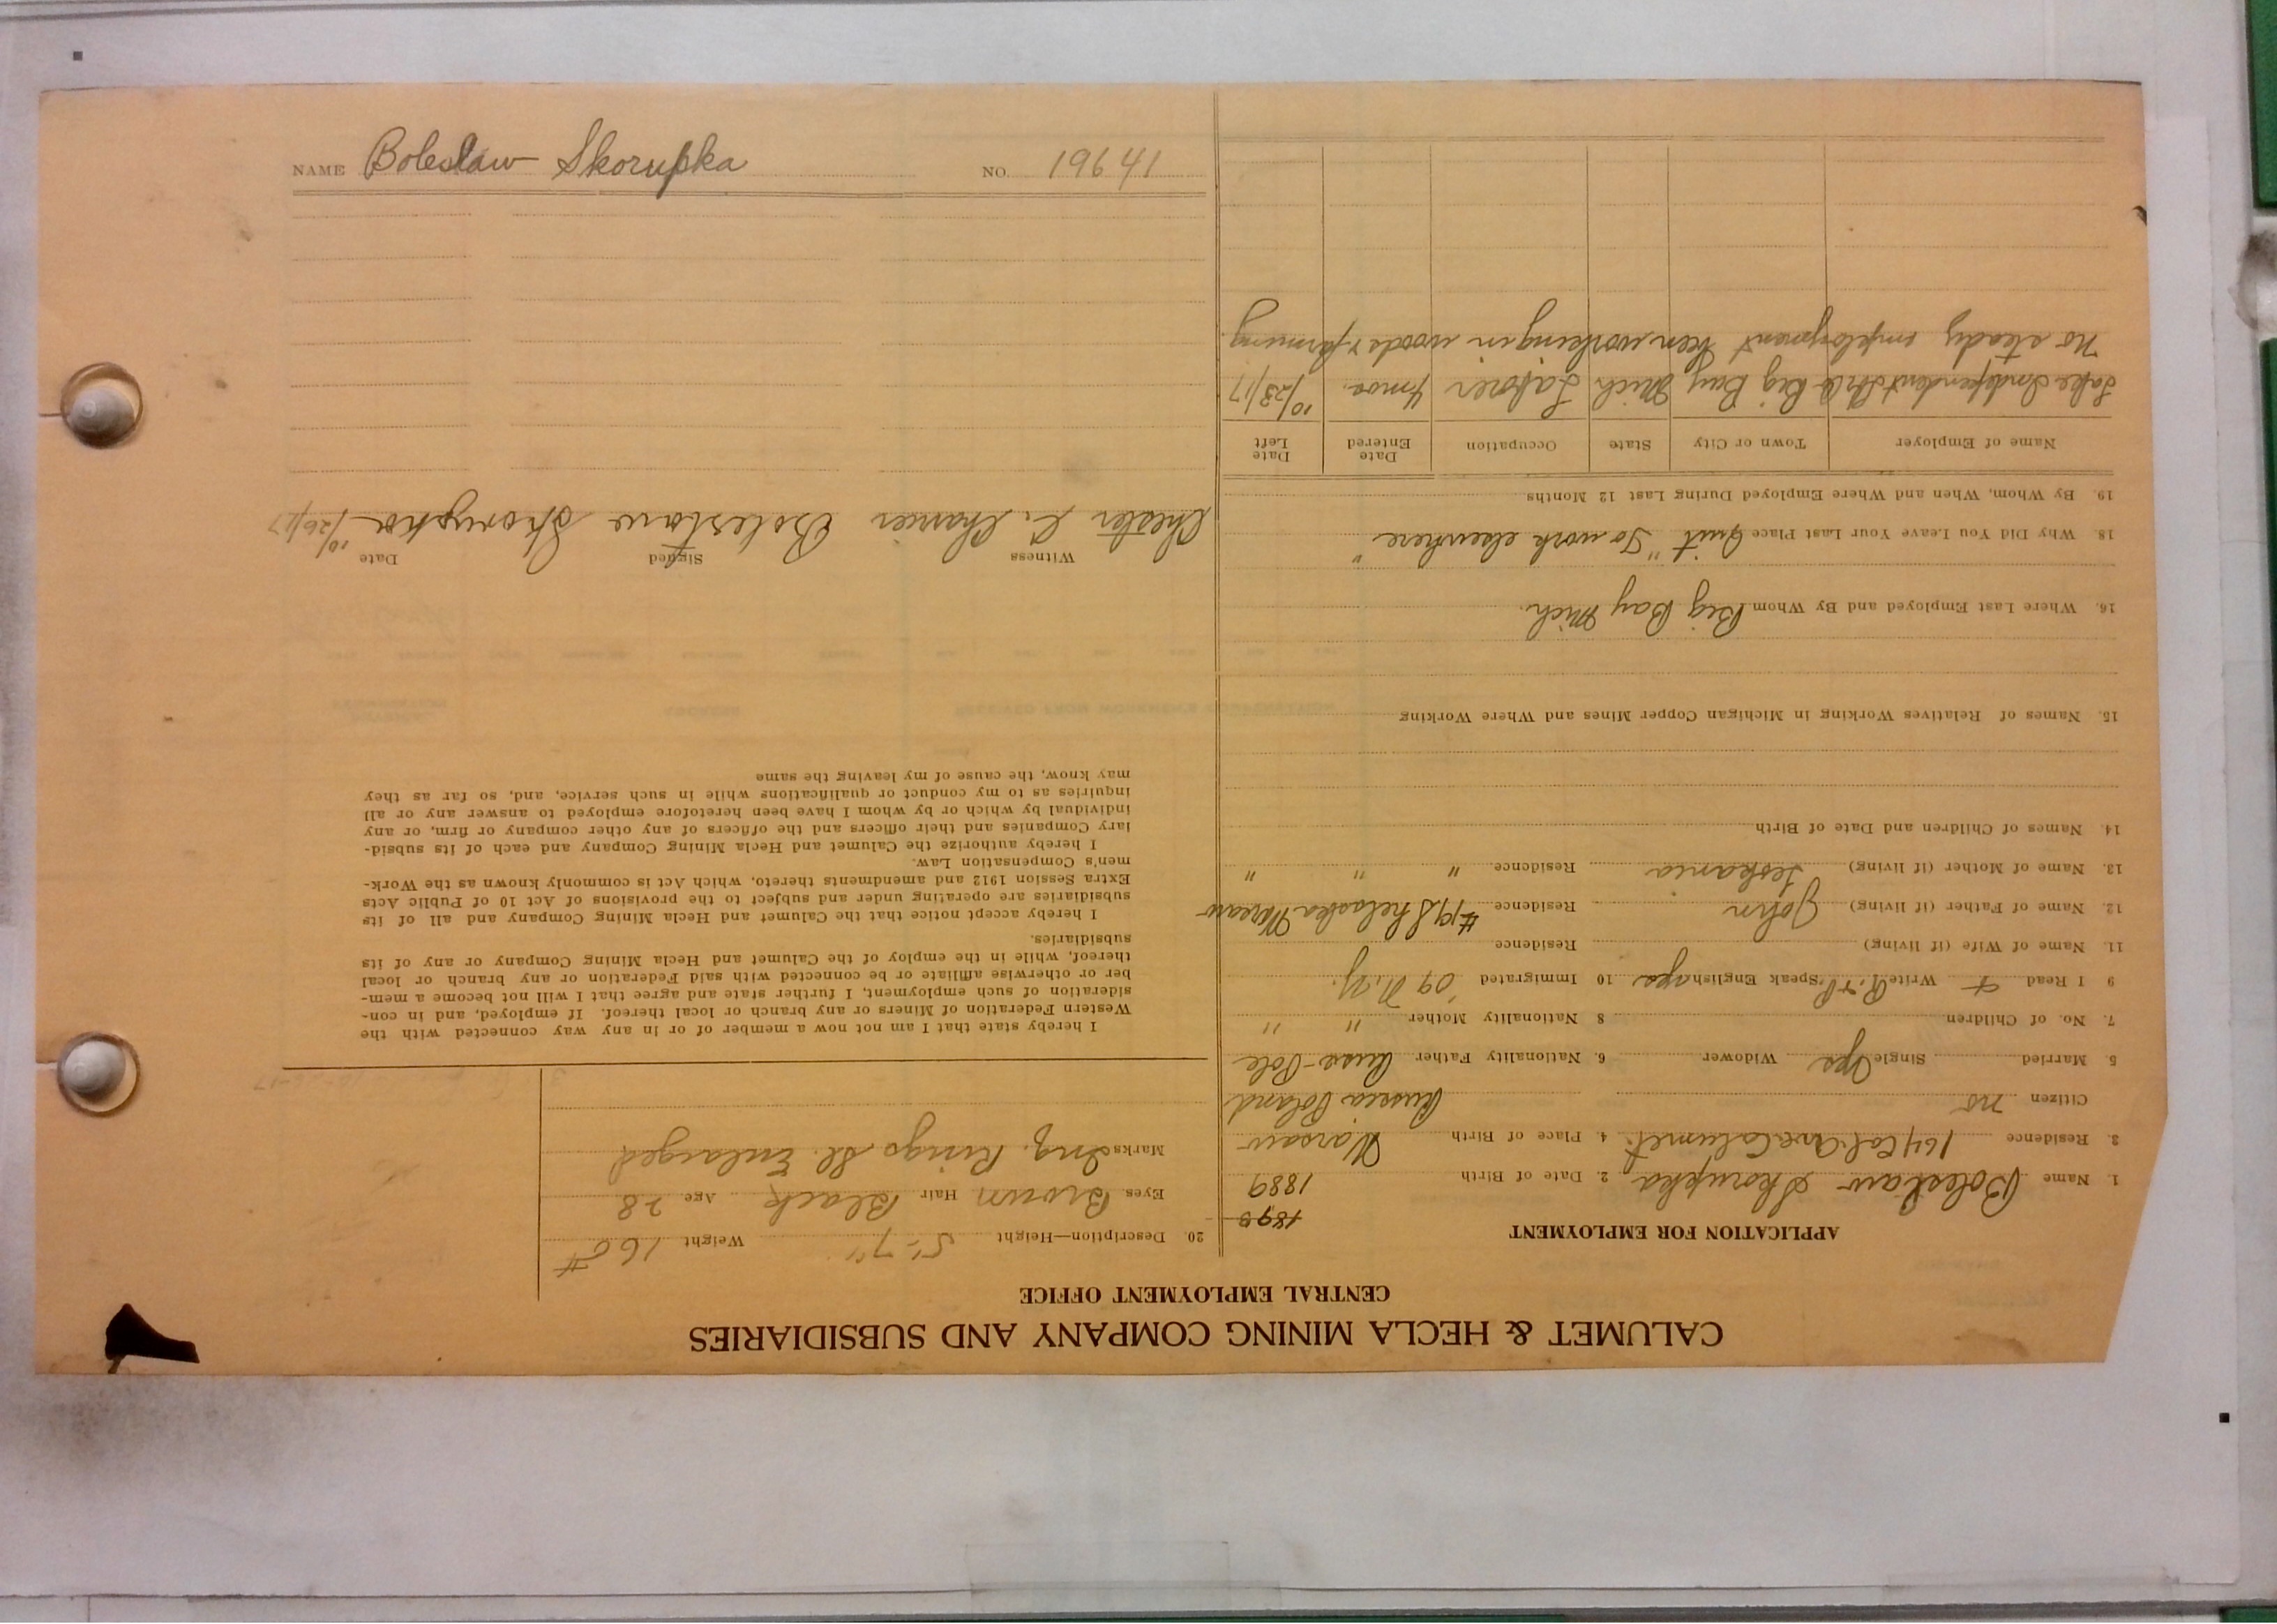 CALUMET & HECLA MINING COMPANY AND SUBSIDIARIES
CENTRAL EMPLOYMENT OFFICE
APPLICATION FOR EMPLOYMENT
1893
1. Name Boleslaw Skorupka 2. Date of Birth 1889
3. Residence 164 Cal. Ave Calumet. 4. Place of Birth Warsaw
Citizen no Russia Poland
5. Married Single Yes Widower 6. Nationality Father Russ-Pole
7. No. of Children 8 Nationality Mother " "
9 I Read + Write R. + P. Speak English yes 10 Immigrated '09 N.Y.
11. Name of Wife (if living) Residence
12. Name of Father (if living) John Residence #19 Warsaw
13. Name of Mother (if living) Residence " " "
14. Names of Children and Date of Birth
15. Names of Relatives Working in Michigan Copper Mines and Where Working
16. Where Last Employed and By Whom Big Bay Mich.
18. Why Did You Leave Your Last Place Quit "To work elsewhere"
19. By Whom, When and Where Employed During Last 12 Months
Name of Employer Town or City State Occupation Date Entered Date Left
Lake Independent Big Bay Mich Laborer 4 mos. 10/23/17
No steady employment been working in woods & farming
20. Description—Height 5'-7" Weight 160#
Eyes Brown Hair Black Age 28
Marks Ring. Enlarged
I hereby state that I am not now a member of or in any way connected with the
Western Federation of Miners or any branch or local thereof. If employed, and in con-
sideration of such employment, I further state and agree that I will not become a mem-
ber or otherwise affiliate or be connected with said Federation or any branch or local
thereof, while in the employ of the Calumet and Hecla Mining Company or any of its
subsidiaries.
I hereby accept notice that the Calumet and Hecla Mining Company and all of its
subsidiaries are operating under and subject to the provisions of Act 10 of Public Acts
Extra Session 1912 and amendments thereto, which Act is commonly known as the Work-
men's Compensation Law.
I hereby authorize the Calumet and Hecla Mining Company and each of its subsid-
iary Companies and their officers and the officers of any other company or firm, or any
individual by which or by whom I have been heretofore employed to answer any or all
inquiries as to my conduct or qualifications while in such service, and, so far as they
may know, the cause of my leaving the same
Witness Signed Date
Chester C. Boleslaw Skorupka 10/26/17
NAME Boleslaw Skorupka NO. 19641